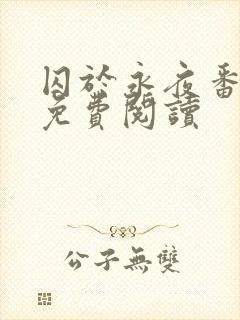 囚於永夜番
免費閱讀
公子無雙